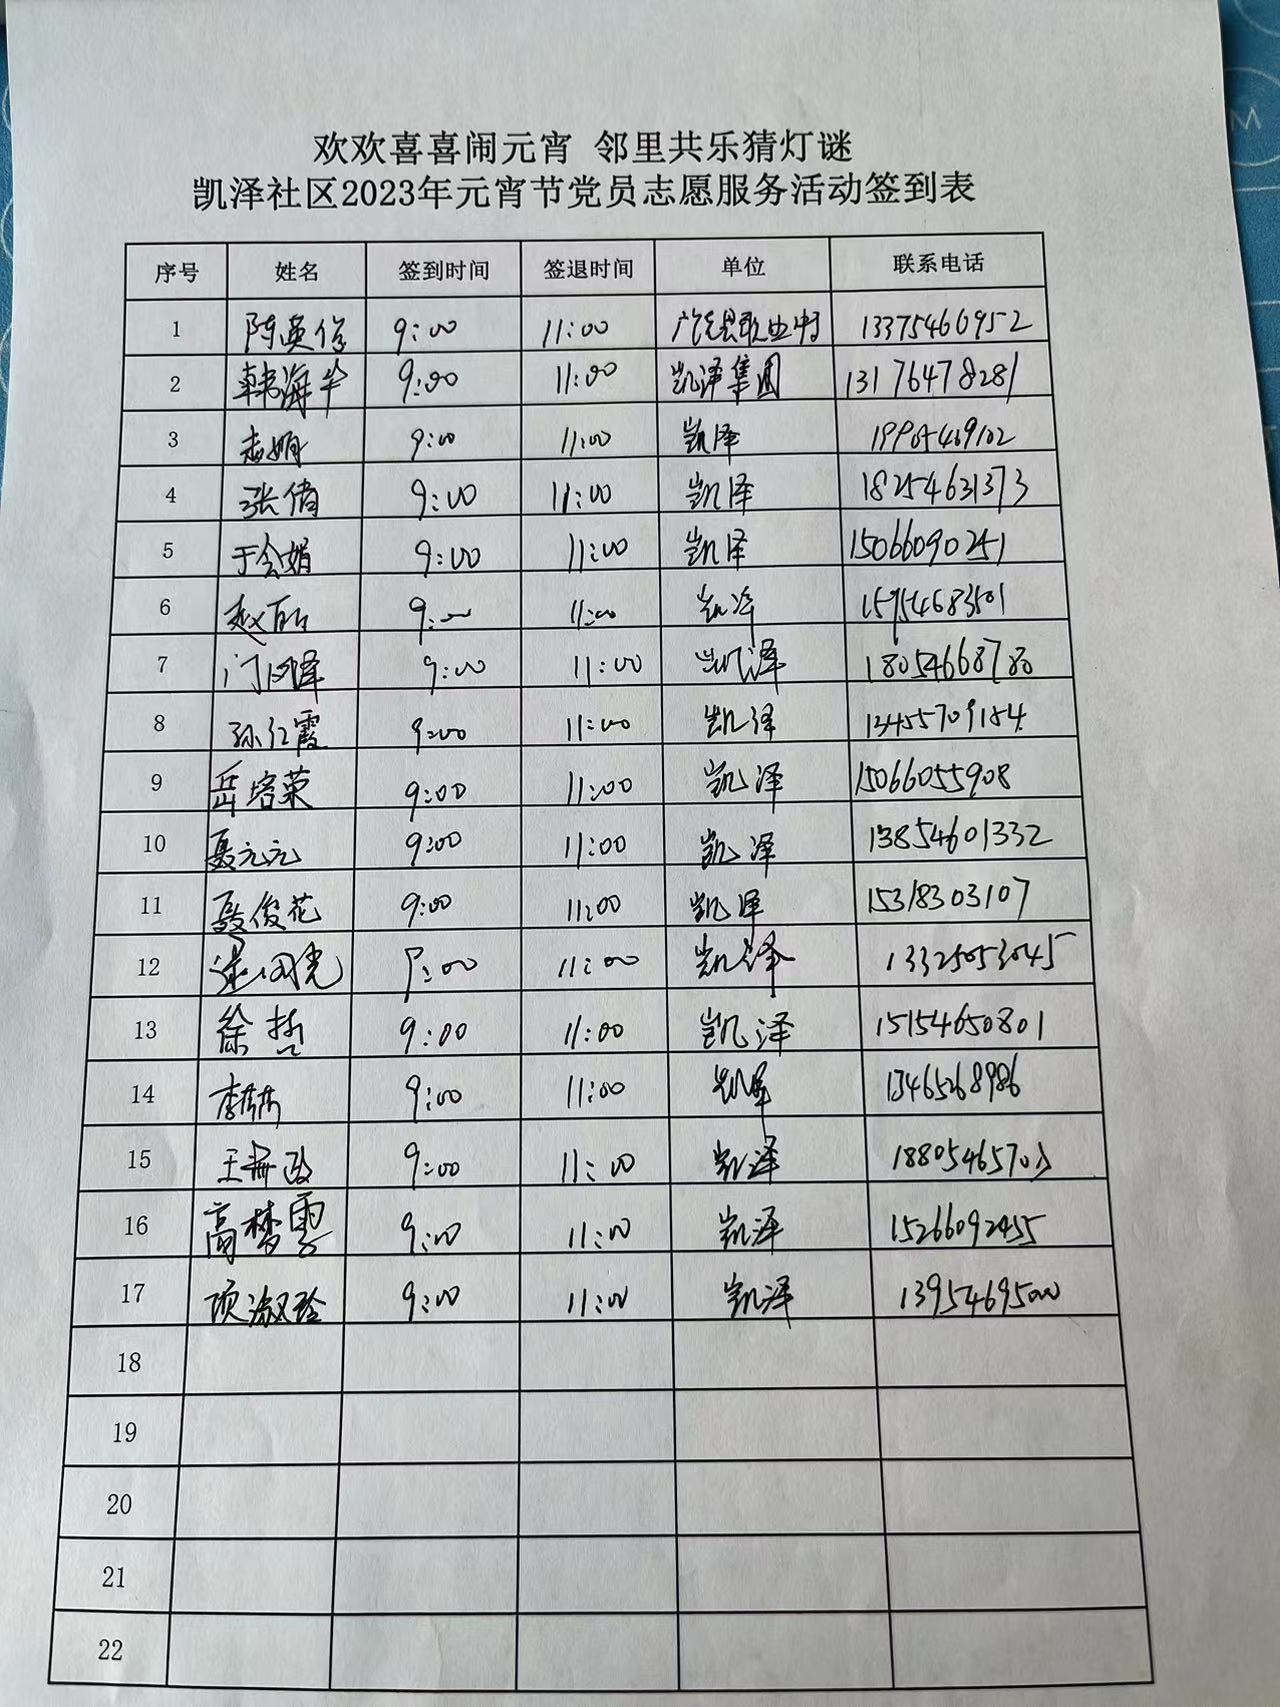 欢欢喜喜闹元宵 邻里共乐猜灯谜
凯泽社区2023年元宵节党员志愿服务活动签到表
序号 姓名 签到时间 签退时间 单位 联系电话
1 陈英俊 9:00 11:00 13375466952
2 韩海华 9:00 11:00 凯泽集团 13176478281
3 9:00 11:00 凯泽
4 张倩 9:00 11:00 凯泽 18254631373
5 于会娟 9:00 11:00 凯泽 15066090251
6 9:00 11:00 凯泽 15954683501
7 门凤泽 9:00 11:00 凯泽 18054668780
8 孙红霞 9:00 11:00 凯泽 13455709154
9 岳培荣 9:00 11:00 凯泽 15066055908
10 聂元元 9:00 11:00 凯泽 13854601332
11 聂俊花 9:00 11:00 凯泽 15318303107
12 9:00 11:00 凯泽 13325053045
13 徐哲 9:00 11:00 凯泽 15154650801
14 9:00 11:00 凯泽 13465268986
15 9:00 11:00 凯泽
16 高梦雪 9:00 11:00 凯泽 15266092455
17 项淑玲 9:00 11:00 凯泽 13954695000
18
19
20
21
22